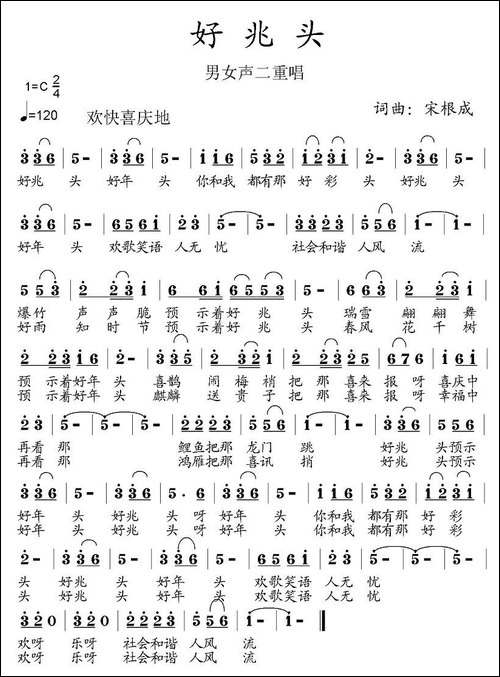 好兆头
男女声二重唱
1=C 2/4
♩=120
欢快喜庆地
词曲：宋根成
好兆 头 好年 头 你和我 都有那 好 彩 头 好兆 头
好年 头 欢歌笑语 人无 忧 社会和谐 人风 流
爆竹 声 声 脆 预 示着好 兆 头 瑞雪 翩 翩 舞
好雨 知 时 节 预 示着好 兆 头 春风 花 千 树
预 示着好年 头 喜鹊 闹 梅 梢 把 那 喜来 报 呀 喜庆中
预 示着好年 头 麒麟 送 贵 子 把 那 喜来 报 呀 幸福中
再看 那 鲤鱼把那 龙门 跳 好兆 头预示
再看 那 鸿雁把那 喜讯 捎 好兆 头预示
好年 头 好兆 头 呀 好年 头 你和我 都有那 好 彩
好年 头 好兆 头 呀 好年 头 你和我 都有那 好 彩
头 好兆 头 好年 头 欢歌笑语 人无 忧
头 好兆 头 好年 头 欢歌笑语 人无 忧
欢呀 乐呀 社会和谐 人风 流
欢呀 乐呀 社会和谐 人风 流